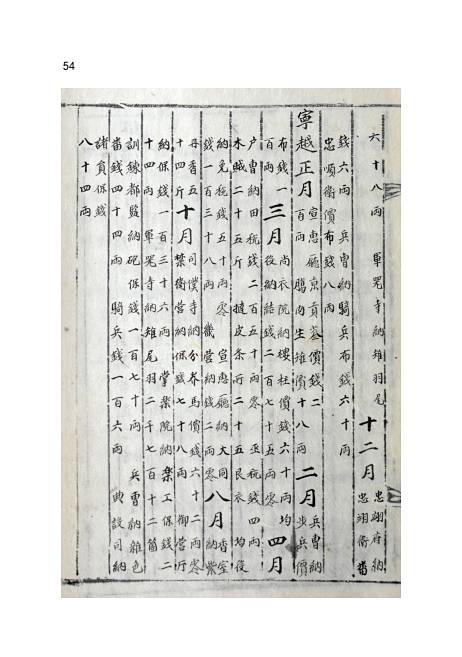 54
六十八兩 軍器寺納雉羽尾 十二月 忠翊府納
忠翊衛番
錢六兩 兵曹納騎兵布錢六十兩
忠順衛價布錢八兩
寧越正月 宣惠廳京貢蔘價錢二
百兩 臈肉生雉價十八兩 二月 兵曹納
步兵價
布錢一
百兩 三月 尚衣院納樓柱價錢六十兩 均
役納結錢二百七十五兩零 四月
戶曹納田稅錢二百五十兩零 錢四兩
木賊二十五斤 皮条所二十五艮衣 均役
納免稅錢五十兩零 宣惠廳納大同
錢一百三十八兩 畿營納錢二兩零 八月 香室
納紫
丹香五
十四斤 十月 司僕寺納分養馬價錢六十二兩零
禁衛營納保錢七十八兩 御營
納保錢一百三十六兩 掌樂院納樂工保錢二
十四兩 軍器寺納雉尾羽二千七百十二箇
訓練都監納砲保錢一百七十兩 兵曹納雜色
番錢四十四兩 騎兵錢一百六兩 典設司納
諸員保錢
八十四兩